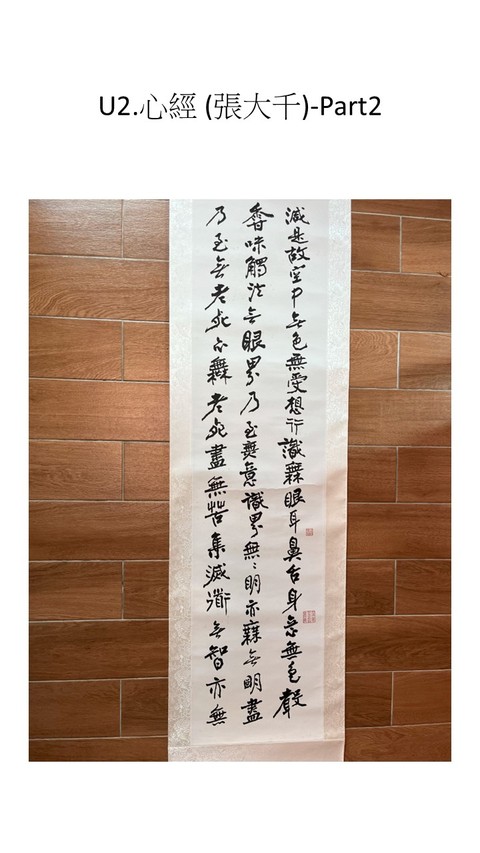 U2.心經 (張大千)-Part2
減是故空中无色無受想行識無眼耳鼻舌身意無色聲
香味觸法无眼界乃至無意識界無〻明亦無无明盡
乃至无老死亦無老死盡無苦集滅衟无智亦無